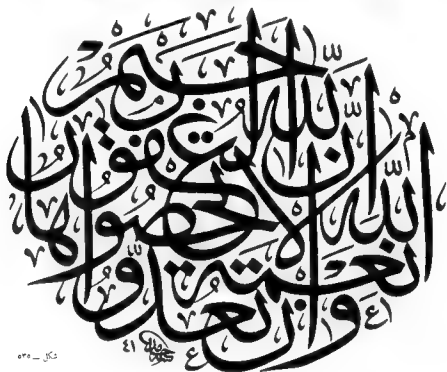 وَإِن تَعُدُّوا نِعْمَةَ اللهِ لَا تُحْصُوهَا إِنَّ اللهَ لَغَفُورٌ رَّحِيمٌ
شكل – ٥٣٥